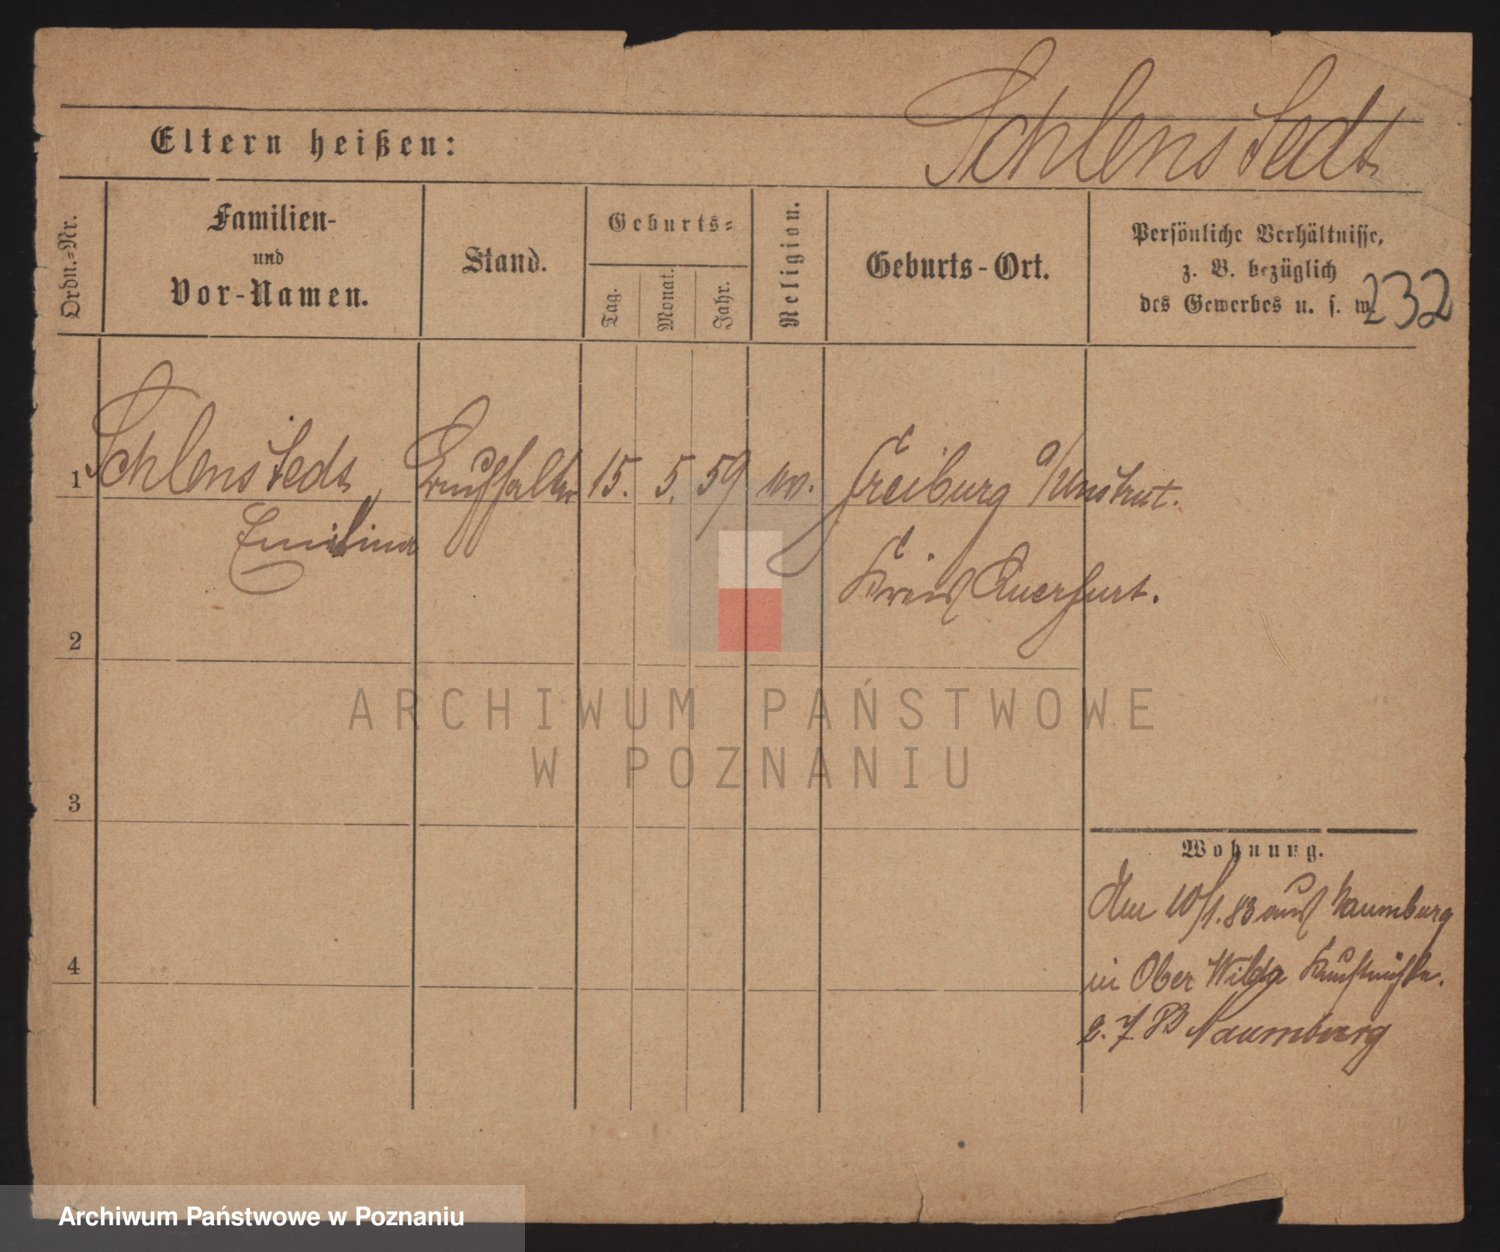 Schlenstedt
Eltern heißen:
Ordn.=Nr.
Familien-
und
Vor-Namen.
Stand.
Geburts=
Tag.
Monat.
Jahr.
Religion.
Geburts-Ort.
Persönliche Verhältnisse,
z. B. bezüglich
des Gewerbes u. s. w.
232
1 Schlenstedt, 15. 5. 59 ev. Freiburg a/Unstrut.
Kreis Querfurt.
2
ARCHIWUM PAŃSTWOWE
W POZNANIU
3
Wohnung.
10/1. 83 aus Naumburg
in Ober Wilda
4
2. 7. 83 Naumburg
Archiwum Państwowe w Poznaniu